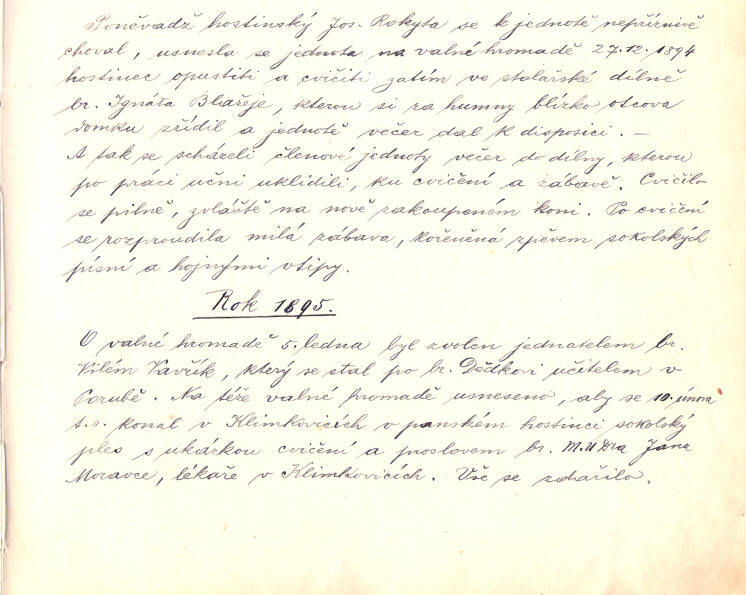 Poněvadž hostinský Jos. Rokyta se k jednotě nepříznivě
choval, usnesla se jednota na valné hromadě 27.12.1894
hostinec opustiti a cvičiti zatím ve stolařské dílně
br. Ignáta Blažeje, kterou si za humny blízko otcova
domku zřídil a jednotě večer dal k disposici. —
A tak se scházeli členové jednoty večer do dílny, kterou
po práci učni uklidili, ku cvičení a zábavě. Cvičilo
se pilně, zvláště na nově zakoupeném koni. Po cvičení
se rozproudila milá zábava, kořeněná zpěvem sokolských
písní a hojnými vtipy.
Rok 1895.
O valné hromadě 5. ledna byl zvolen jednatelem br.
Vilém Kavčík, který se stal po br. Dědkovi učitelem v
Porubě. Na téže valné hromadě usneseno, aby se 10. února
t.r. konal v Klimkovicích v panském hostinci sokolský
ples s ukázkou cvičení a proslovem br. M.U.Dra Jana
Moravce, lékaře v Klimkovicích. Vše se zdařilo.